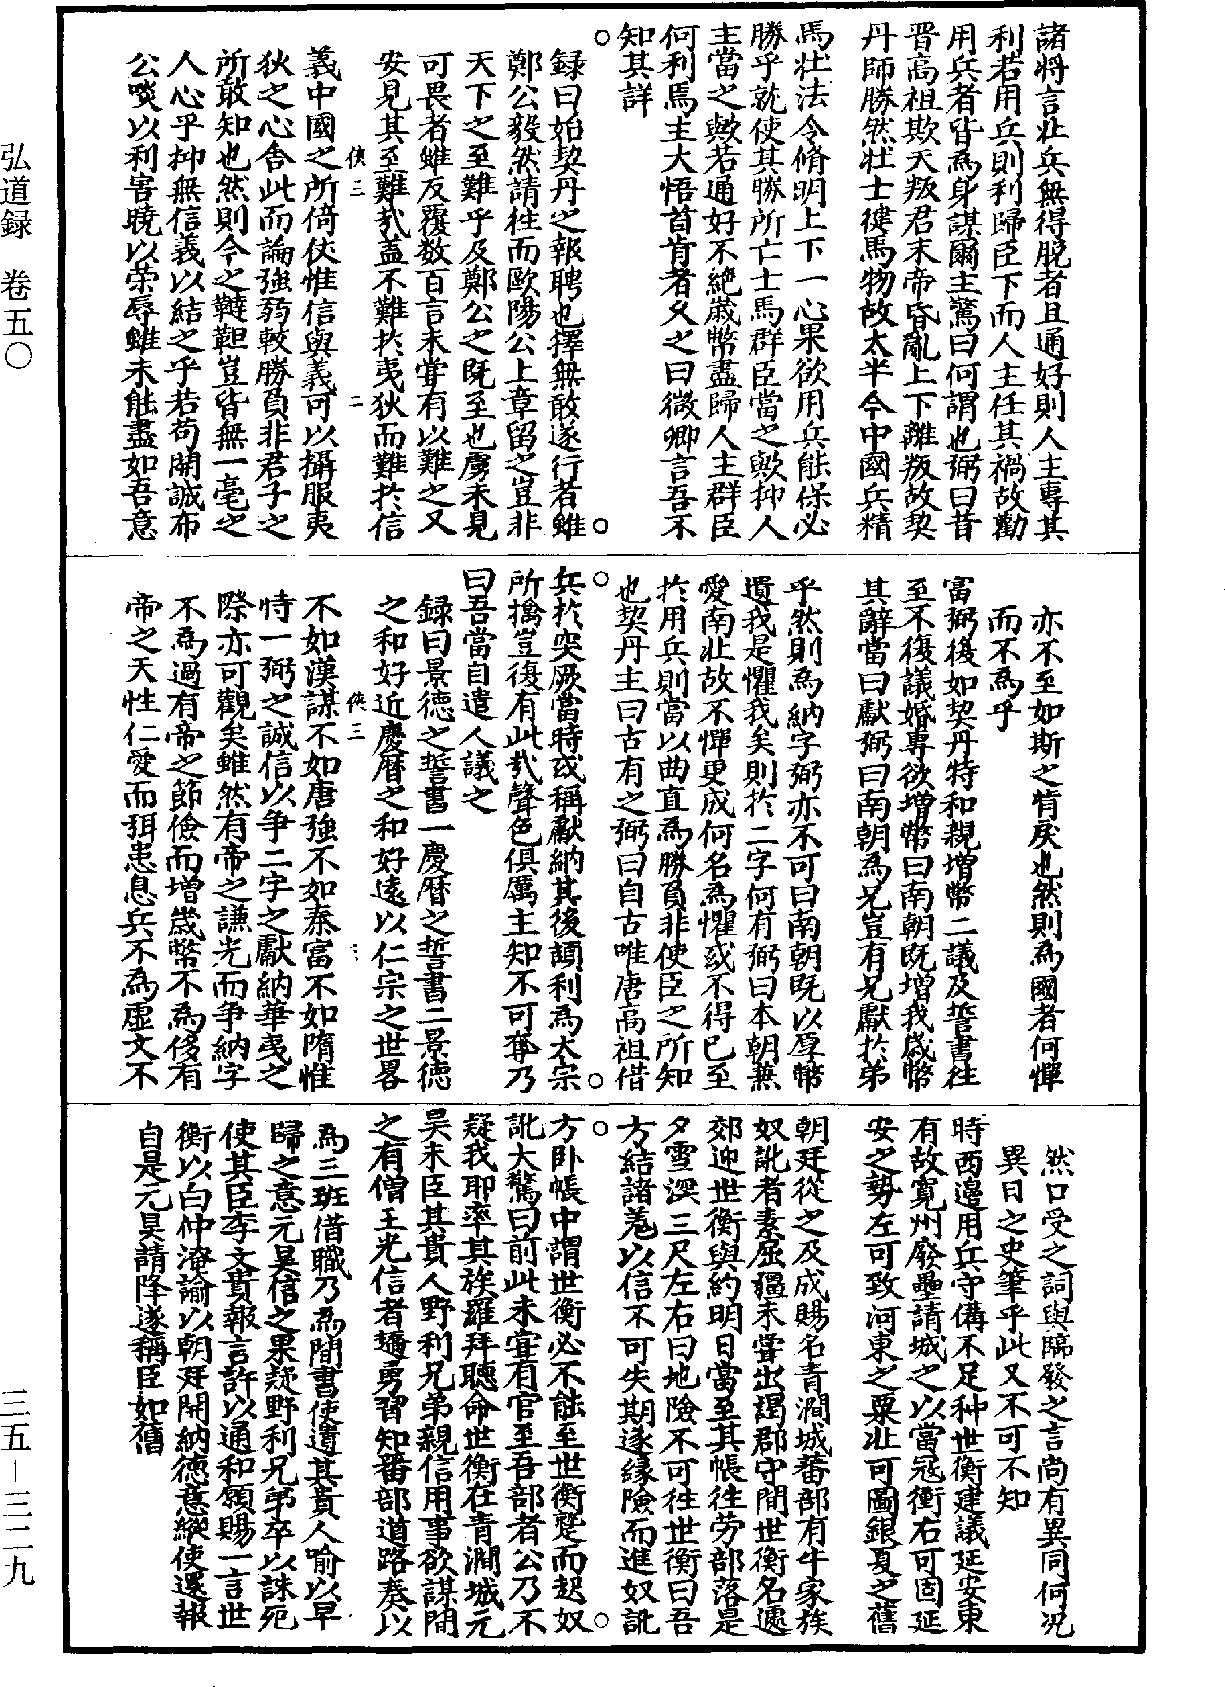 諸將言北兵無得脫者且通好則人主專其
利若用兵則利歸臣下而人主任其禍故勸
用兵者皆為身謀爾主驚曰何謂也弼曰昔
晉高祖欺天叛君末帝昏亂上下離叛故契
丹師勝然壯士健馬物故太半今中國兵精
馬壯法令脩明上下一心果欲用兵能保必
勝乎就使其勝所亡士馬群臣當之歟抑人
主當之歟若通好不絕歲幣盡歸人主群臣
何利焉主大悟首肯者久之曰微卿言吾不
知其詳
錄曰始契丹之報聘也擇無敢遂行者雖
鄭公毅然請往而歐陽公上章留之豈非
天下之至難乎及鄭公之既至也虜未見
可畏者雖反覆数百言未甞有以難之又
安見其至難哉蓋不難扵夷狄而難扵信
義中國之所倚伏惟信與義可以攝服夷
狄之心舍此而論強弱較勝負非君子之
所敢知也然則今之韃靼豈皆無一毫之
人心乎抑無信義以結之乎若苟開誠布
公啖以利害曉以榮辱雖未能盡如吾意
俠三
二
亦不至如斯之悄戾也然則為國者何憚
而不為乎
富弼後如契丹特和親增幣二議及誓書往
至不復議婚專欲增幣曰南朝既增我歲幣
其辭當曰獻弼曰南朝為兄豈有兄獻扵弟
乎然則為納字弼亦不可曰南朝既以厚幣
遺我是懼我矣則扵二字何有弼曰本朝兼
愛南北故不憚更成何名為懼或不得已至
扵用兵則當以曲直為勝負非使臣之所知
也契丹主曰古有之弼曰自古唯唐高祖借
兵扵突厥當時或稱獻納其後頡利為太宗
所擒豈復有此哉聲色俱厲主知不可奪乃
曰吾當自遣人議之
錄曰景德之誓書一慶曆之誓書二景德
之和好近慶曆之和好遠以仁宗之世畧
不如漢謀不如唐強不如秦富不如隋惟
恃一弼之誠信以争二字之獻納華夷之
際亦可觀矣雖然有帝之謙光而争納字
不為過有帝之節儉而增歲幣不為侈有
帝之天性仁愛而弭患息兵不為虛文不
俠三
三
然口受之詞與臨發之言尚有異同何况
異日之史筆乎此又不可不知
時西邊用兵守備不足种世衡建議延安東
有故寬州廢壘請城之以當冦衝右可固延
安之勢左可致河東之粟北可圖銀夏之舊
朝廷從之及成賜名青澗城蕃部有牛家族
奴訛者素屈彊未甞出謁郡守聞世衡名遽
郊迎世衡與約明日當至其帳往劳部落是
夕雪深三尺左右曰地險不可往世衡曰吾
方結諸羌以信不可失期遂緣險而進奴訛
方卧帳中謂世衡必不能至世衡蹙而起奴
訛大驚曰前此未甞有官至吾部者公乃不
疑我耶率其族羅拜聽命世衡在青澗城元
昊未臣其貴人野利兄弟親信用事欲謀間
之有僧王光信者趫勇習知蕃部道路奏以
為三班借職乃為間書使遺其貴人喻以早
歸之意元昊信之果疑野利兄弟卒以誅死
使其臣李文貴報言許以通和願賜一言世
衡以白仲淹諭以朝廷開納德意縱使還報
自是元昊請降遂稱臣如舊
弘道録　卷五〇
三五－三二九